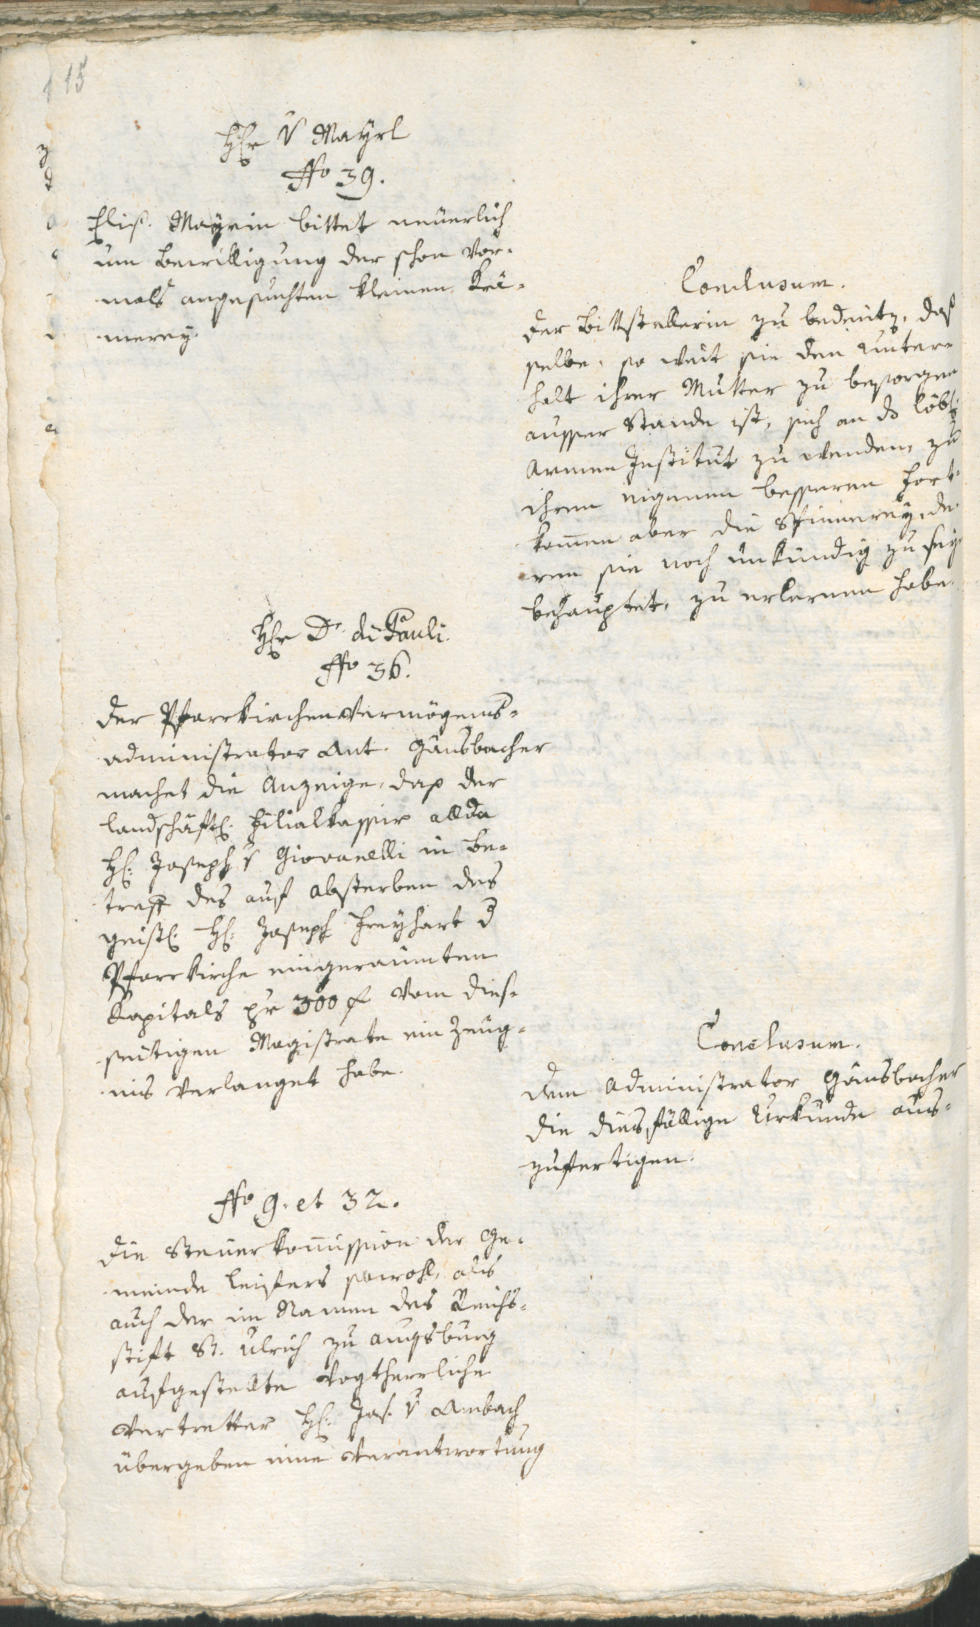 115
Hr v Mayrl
ffo 39.
Elis. Mayrin bittet neüerlich
um Bewilligung der schon vor-
mals angesuchten kleinen Krä-
merey.
Conclusum.
Der Bittstellerin zu bedeuten, daß
selbe, so weit sie den Unter-
halt ihrer Mutter zu besorgen
ausser Stande ist, sich an das löbl:
Armen Institut zu wenden, zu
ihrem eigenen besseren Fort-
kommen aber die Spinnerey, de-
ren sie noch unkündig zu seyn
behauptet, zu erlernen habe.
Hr Dr di Pauli.
ffo 36.
Der Pfarrkirchenvermögens-
administrator Ant. Gänsbacher
machet die Anzeige, daß der
landschäftl: Filialkassir allda
H: Joseph v Giovanelli in Be-
treff des auf Absterben des
geistl: H: Joseph Freyhart d
Pfarrkirche eingeraumten
Kapitals pr 300 f vom dies-
seitigen Magistrate ein Zeug-
nis verlanget habe.
Conclusum.
Dem Administrator Gänsbacher
die diesfällige Urkunde aus-
zufertigen.
ffo 9. et 32.
Die Steuerkommission der Ge-
meinde Leifers sowohl, als
auch der im Namen des Reichs-
stift St. Ulrich zu Augsburg
aufgestellte Vogtherrliche
Vertretter H: Jos. v Ambach
übergeben eine Verantwortung